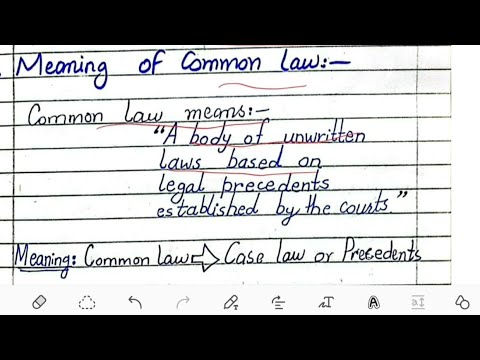 Meaning of Common Law:-
Common law means:-
"A body of unwritten
laws based on
legal precedents
established by the courts."
Meaning: Common law ⇨ Case law or Precedents